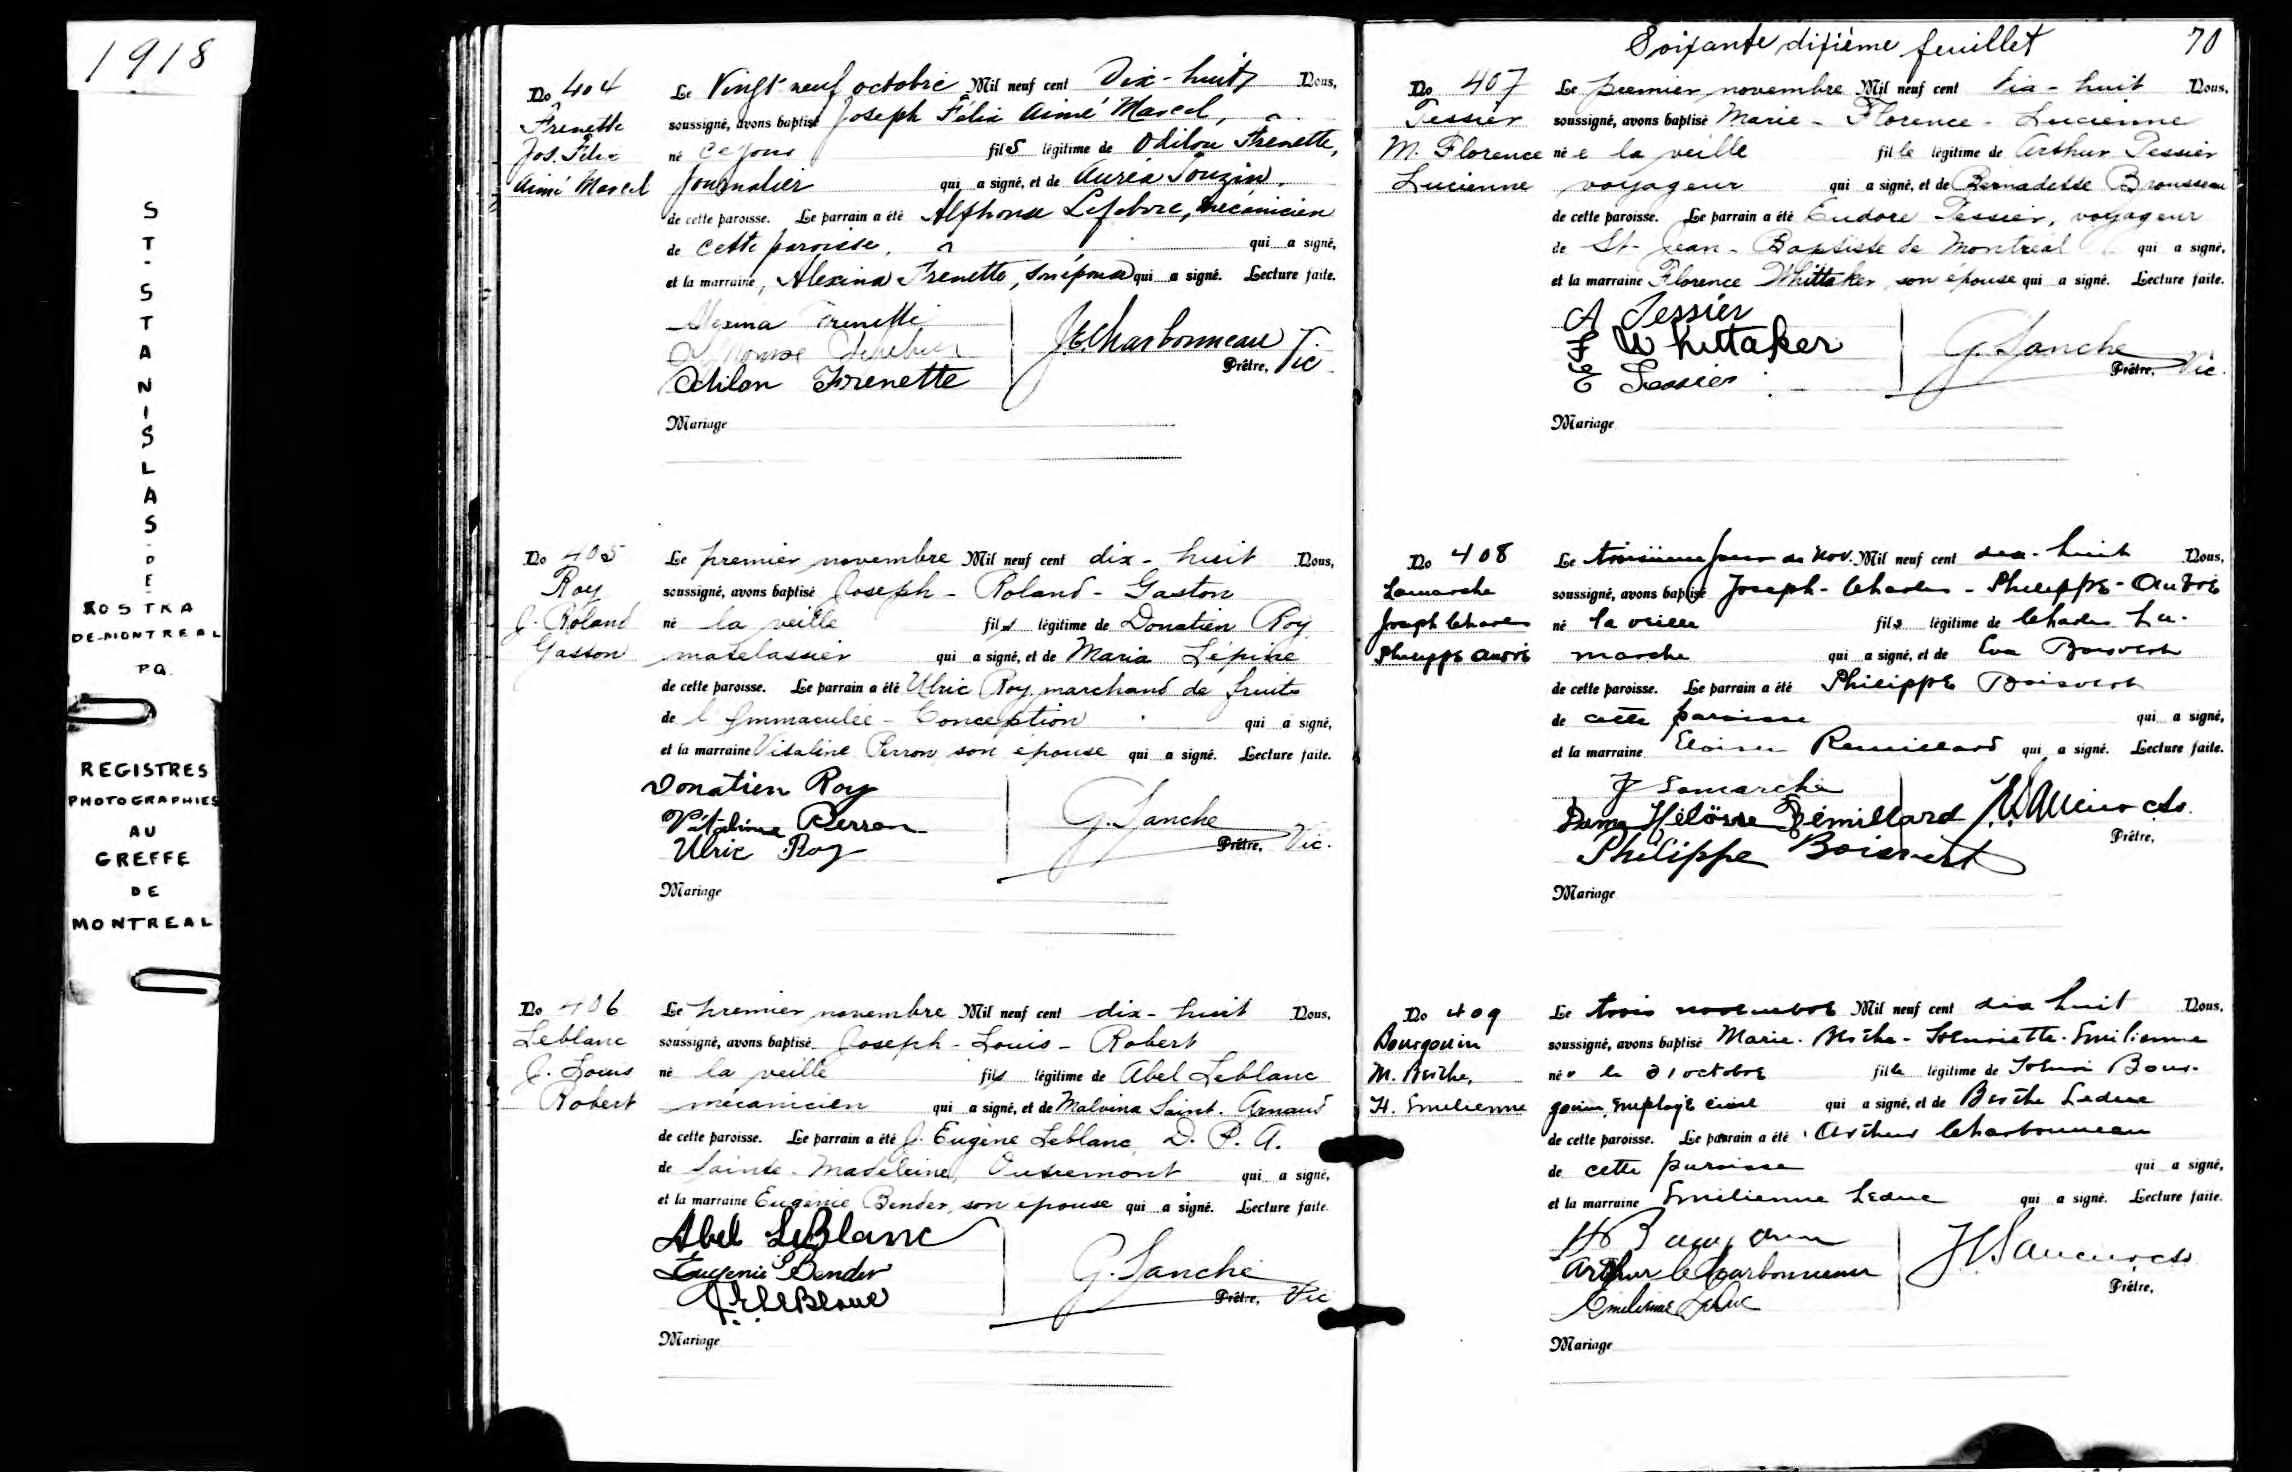 1918
ST-STANISLAS-DE
KOSTKA
DE MONTREAL
P.Q.
REGISTRES
PHOTOGRAPHIES
AU
GREFFE
DE
MONTREAL
No 404
Frenette
Jos. Félix
Aimé Marcel
Le Vingt neuf octobre Mil neuf cent Dix-huit, Nous,
soussigné, avons baptisé Joseph Félix Aimé Marcel,
né ce jour fils légitime de Odilon Frenette,
journalier qui a signé, et de Auréa Touzin,
de cette paroisse. Le parrain a été Alphonse Lefebvre, mécanicien
de cette paroisse, qui a signé,
et la marraine, Alexina Frenette, son épouse qui a signé. Lecture faite.
Alexina Frenette
Alphonse Lefebvre
Odilon Frenette
J.E. Charbonneau
Prêtre, Vic
Mariage
No 405
Roy
J. Roland
Gaston
Le premier novembre Mil neuf cent dix-huit Nous,
soussigné, avons baptisé Joseph-Roland-Gaston
né la veille fils légitime de Donatien Roy
matelassier qui a signé, et de Maria Lépine
de cette paroisse. Le parrain a été Ulric Roy, marchand de fruits
de l'Immaculée-Conception qui a signé,
et la marraine Vitaline Perron, son épouse qui a signé. Lecture faite.
Donatien Roy
Vitaline Perron
Ulric Roy
G. Sanche
Prêtre, Vic.
Mariage
No 406
Leblanc
J. Louis
Robert
Le premier novembre Mil neuf cent dix-huit Nous,
soussigné, avons baptisé Joseph-Louis-Robert
né la veille fils légitime de Abel Leblanc
mécanicien qui a signé, et de Malvina Saint-Arnaud
de cette paroisse. Le parrain a été J. Eugène Leblanc, D. P. A.
de Sainte-Madeleine, Outremont qui a signé,
et la marraine Eugénie Bender, son épouse qui a signé. Lecture faite.
Abel LeBlanc
Eugenie Bender
J. E. LeBlanc
G. Sanche
Prêtre, Vic
Mariage
Soixante dixième feuillet 70
No 407
Tessier
M. Florence
Lucienne
Le premier novembre Mil neuf cent dix-huit Nous,
soussigné, avons baptisé Marie-Florence-Lucienne
née la veille fille légitime de Arthur Tessier
voyageur qui a signé, et de Bernadette Brousseau
de cette paroisse. Le parrain a été Eudore Tessier, voyageur
de St-Jean-Baptiste de Montréal qui a signé,
et la marraine Florence Whittaker, son épouse qui a signé. Lecture faite.
A Tessier
F Whittaker
E Tessier
G. Sanche
Prêtre, Vic.
Mariage
No 408
Lamarche
Joseph Charles
Philippe André
Le troisième jour de Nov. Mil neuf cent dix-huit Nous,
soussigné, avons baptisé Joseph-Charles-Philippe-André
né la veille fils légitime de Charles La-
marche qui a signé, et de Eva Boisvert
de cette paroisse. Le parrain a été Philippe Boisvert
de cette paroisse qui a signé,
et la marraine Eloise Remillard qui a signé. Lecture faite.
Lamarche
Dame Héloïse Rémillard
Philippe Boisvert
Prêtre,
Mariage
No 409
Bourgouin
M. Berthe,
H. Emilienne
Le trois novembre Mil neuf cent dix huit Nous,
soussigné, avons baptisé Marie-Berthe-Henriette-Emilienne
née le 31 octobre fille légitime de Henri Bour-
gouin, employé civil qui a signé, et de Berthe Leduc
de cette paroisse. Le parrain a été Arthur Charbonneau
de cette paroisse qui a signé,
et la marraine Emilienne Leduc qui a signé. Lecture faite.
H Bourgouin
Arthur Charbonneau
Emilienne Leduc
Prêtre,
Mariage